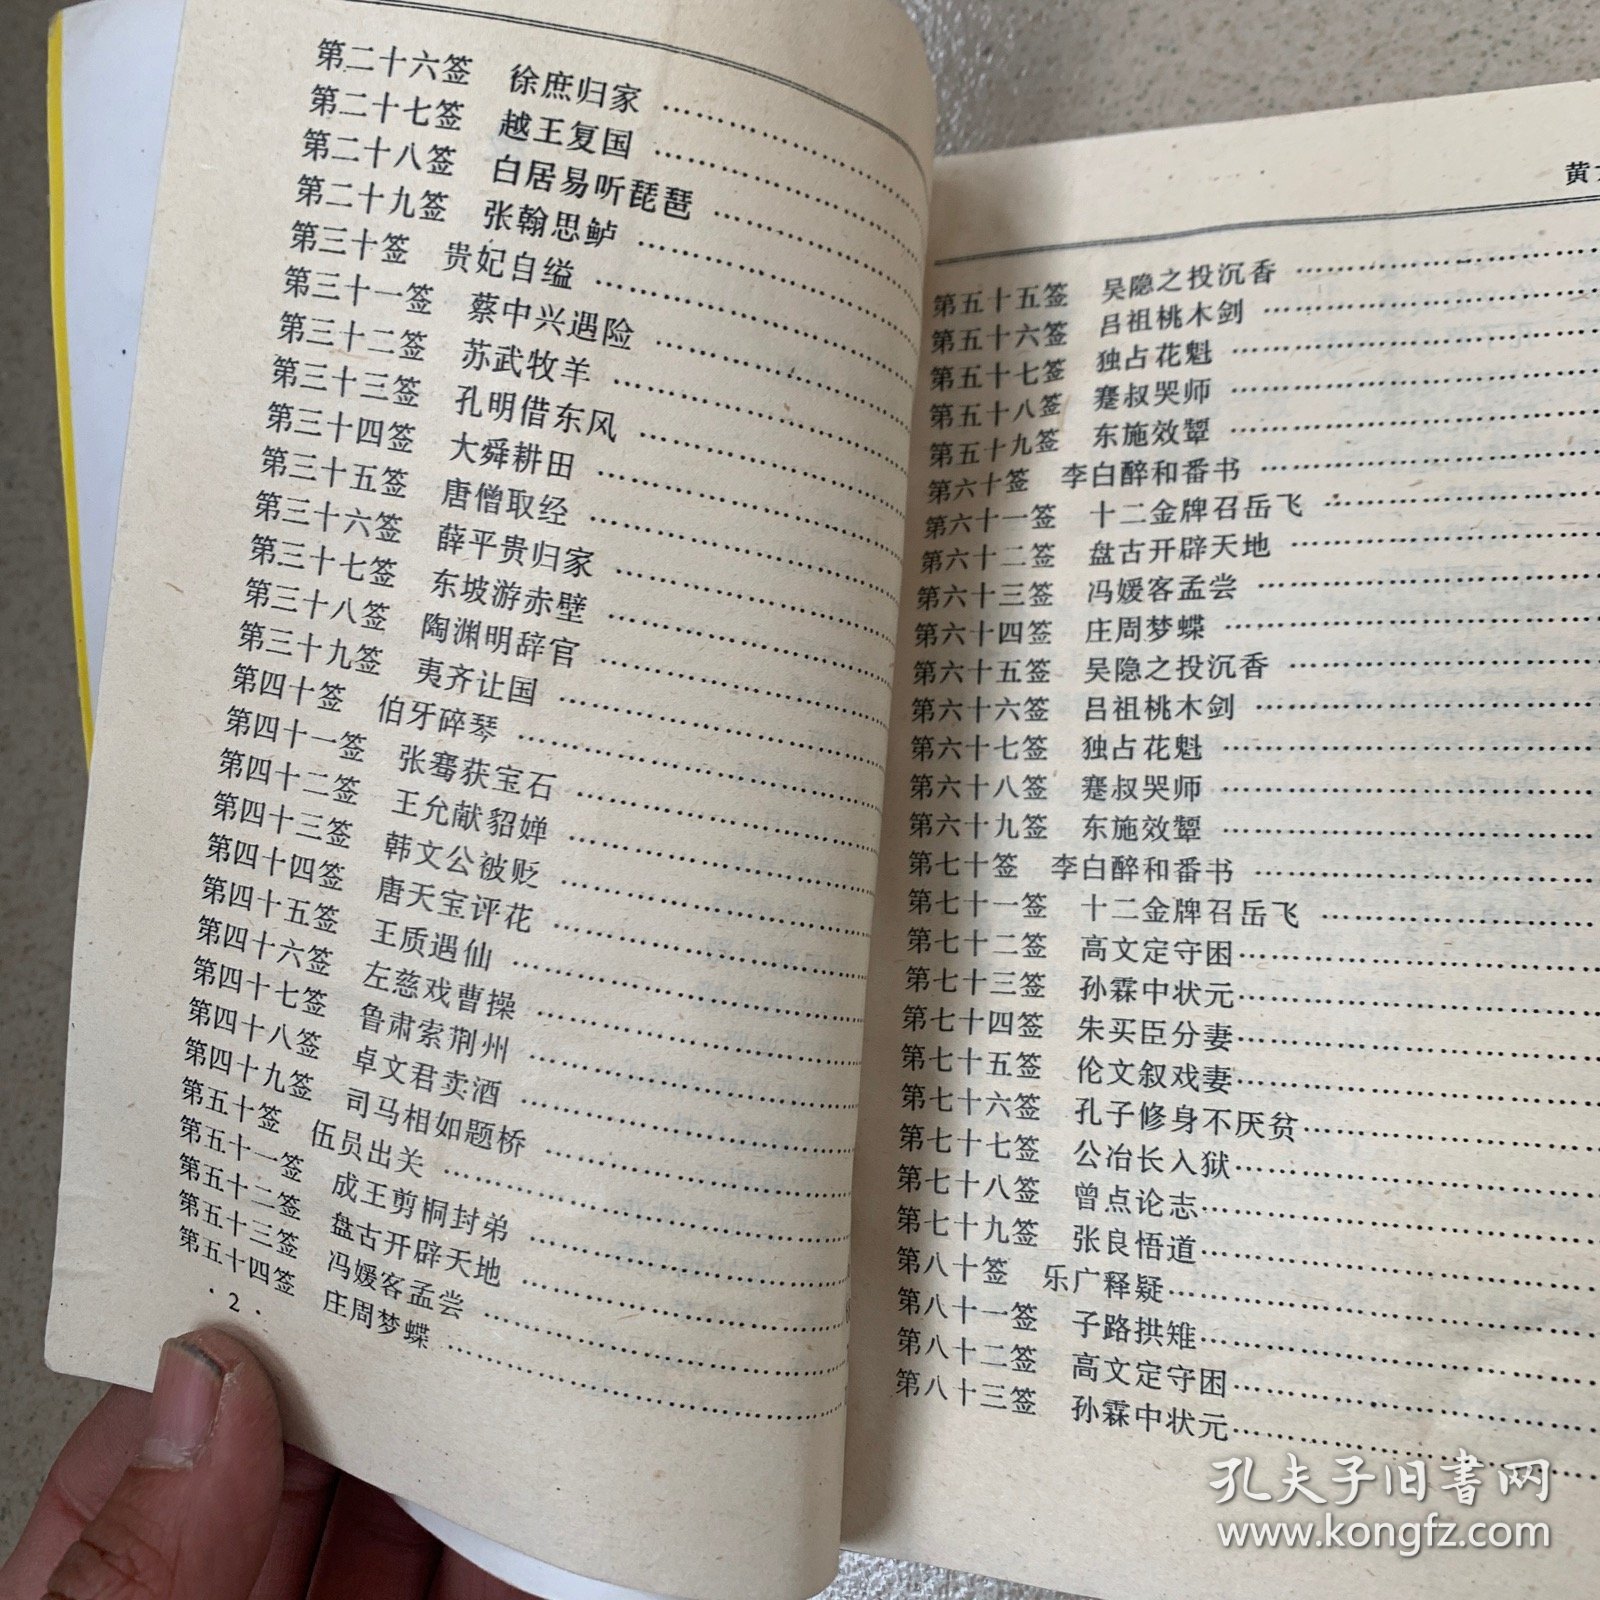 第二十六签 徐庶归家
第二十七签 越王复国
第二十八签 白居易听琵琶
第二十九签 张翰思鲈
第三十签 贵妃自缢
第三十一签 蔡中兴遇险
第三十二签 苏武牧羊
第三十三签 孔明借东风
第三十四签 大舜耕田
第三十五签 唐僧取经
第三十六签 薛平贵归家
第三十七签 东坡游赤壁
第三十八签 陶渊明辞官
第三十九签 夷齐让国
第四十签 伯牙碎琴
第四十一签 张骞获宝石
第四十二签 王允献貂婵
第四十三签 韩文公被贬
第四十四签 唐天宝评花
第四十五签 王质遇仙
第四十六签 左慈戏曹操
第四十七签 鲁肃索荆州
第四十八签 卓文君卖酒
第四十九签 司马相如题桥
第五十签 伍员出关
第五十一签 成王剪桐封弟
第五十二签 盘古开辟天地
第五十三签 冯媛客孟尝
第五十四签 庄周梦蝶
·2·
黄
第五十五签 吴隐之投沉香
第五十六签 吕祖桃木剑
第五十七签 独占花魁
第五十八签 蹇叔哭师
第五十九签 东施效颦
第六十签 李白醉和番书
第六十一签 十二金牌召岳飞
第六十二签 盘古开辟天地
第六十三签 冯媛客孟尝
第六十四签 庄周梦蝶
第六十五签 吴隐之投沉香
第六十六签 吕祖桃木剑
第六十七签 独占花魁
第六十八签 蹇叔哭师
第六十九签 东施效颦
第七十签 李白醉和番书
第七十一签 十二金牌召岳飞
第七十二签 高文定守困
第七十三签 孙霖中状元
第七十四签 朱买臣分妻
第七十五签 伦文叙戏妻
第七十六签 孔子修身不厌贫
第七十七签 公冶长入狱
第七十八签 曾点论志
第七十九签 张良悟道
第八十签 乐广释疑
第八十一签 子路拱雉
第八十二签 高文定守困
第八十三签 孙霖中状元
孔夫子旧书网
www.kongfz.com